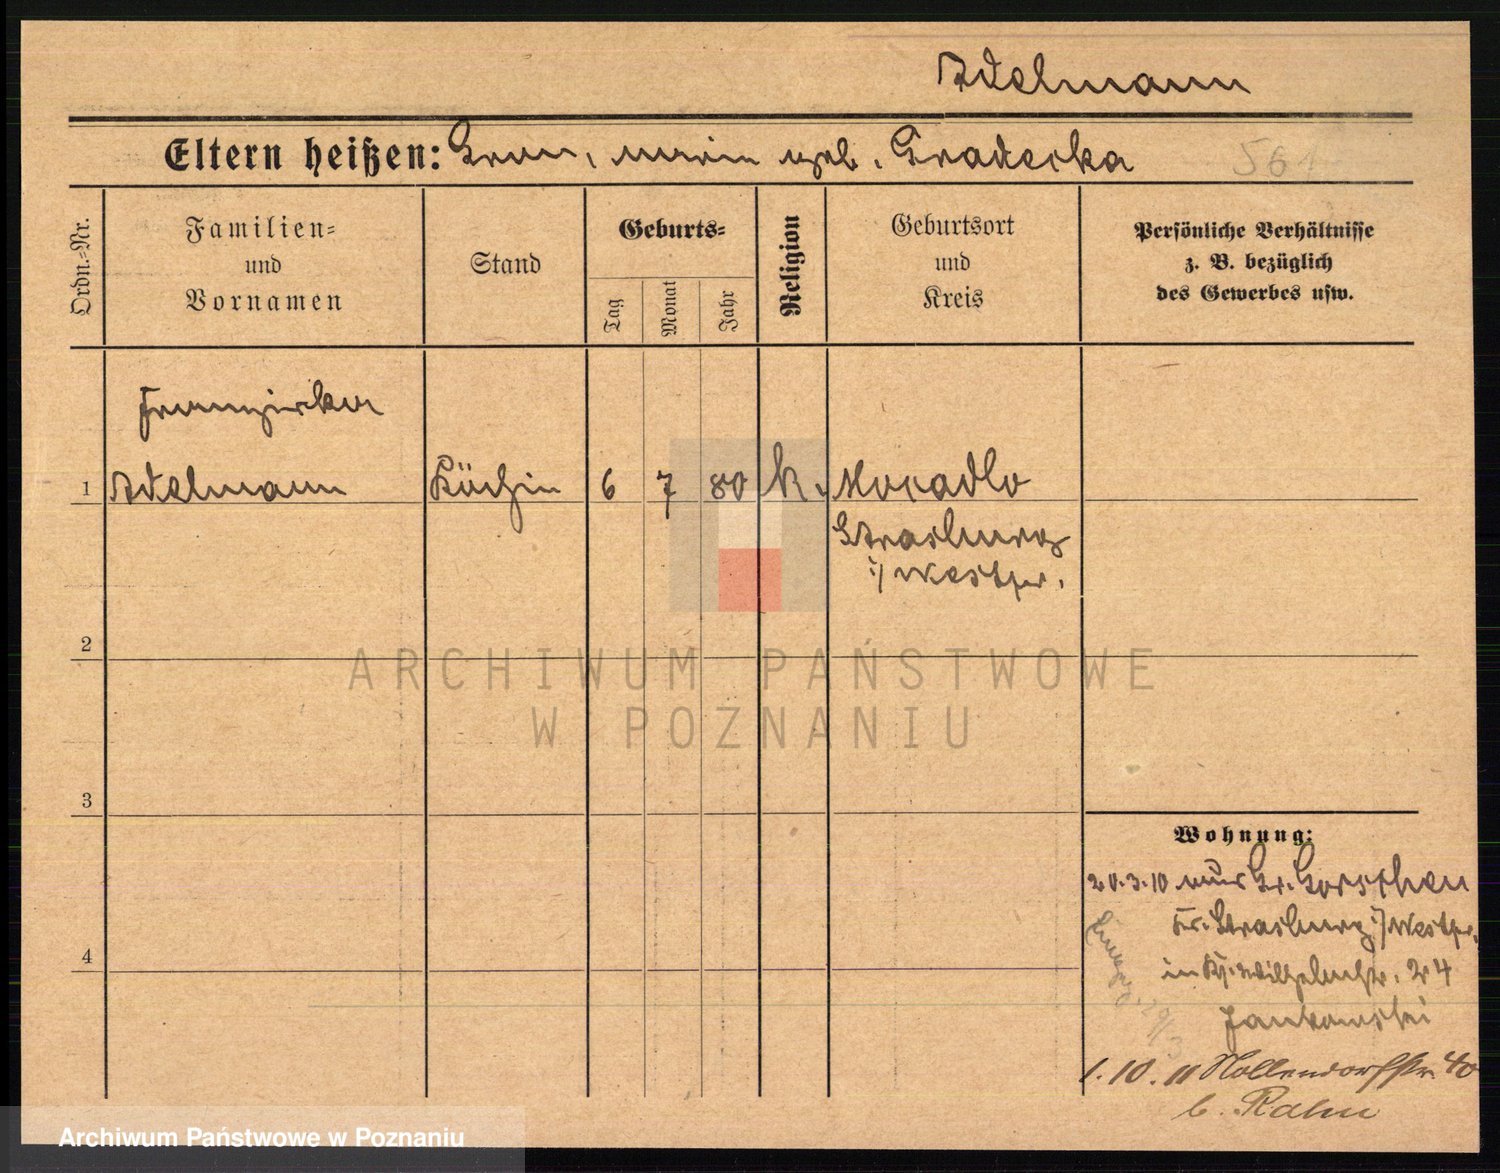 Adelmann
Eltern heißen: Franz, Maria geb. Gradecka
561
Ordn.-Nr.
Familien-
und
Vornamen
Stand
Geburts-
Tag
Monat
Jahr
Religion
Geburtsort
und
Kreis
Persönliche Verhältnisse
z. B. bezüglich
des Gewerbes usw.
Franziska
1 Adelmann Köchin 6 7 80 k. Mocadlo
Strasburg
i/Westpr.
2
3
4
Wohnung:
20.3.10 aus Gr. Gorschen
Kr. Strasburg i/Westpr.
in Kj. Wilhelmstr. 24
Jankowski
29/3
1.10.11 Nollendorfstr. 40
b. Rahn
ARCHIWUM PAŃSTWOWE
W POZNANIU
Archiwum Państwowe w Poznaniu